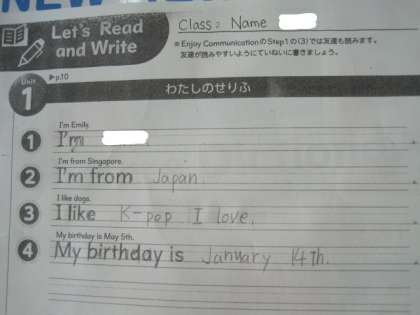 Let's Read
and Write
Class: Name
※Enjoy CommunicationのStep1の(3)では友達も読みます。
友達が読みやすいようにていねいに書きましょう。
▶p.10
Unit
1
わたしのせりふ
I'm Emily.
1 I'm
I'm from Singapore.
2 I'm from Japan.
I like dogs.
3 I like K-pop I love.
My birthday is May 5th.
4 My birthday is January 14th.